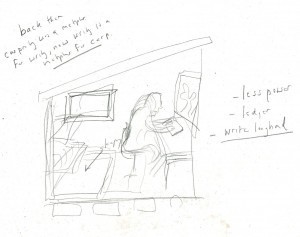 back then
carpentry was a metaphor
for writing, now writing is a
metaphor for carp.
- less power
- ledger
- write longhand